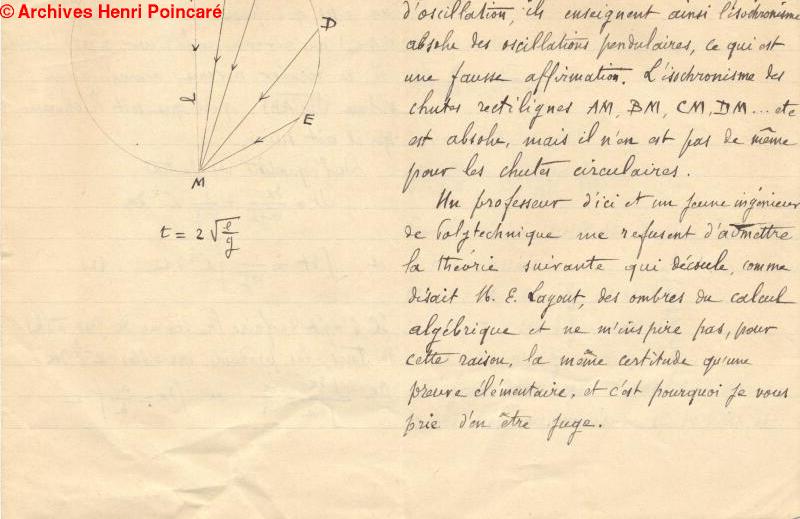 © Archives Henri Poincaré
D
l
E
M
t = 2 √(l/g)
d'oscillation, ils enseignent ainsi l'isochronisme
absolu des oscillations pendulaires, ce qui est
une fausse affirmation. L'isochronisme des
chutes rectilignes AM, BM, CM, DM... etc
est absolu, mais il n'en est pas de même
pour les chutes circulaires.
Un professeur d'ici et un jeune ingénieur
de Polytechnique me refusent d'admettre
la théorie suivante qui découle, comme
disait M. E. Lagout, des ombres du calcul
algébrique et ne m'inspire pas, pour
cette raison, la même certitude qu'une
preuve élémentaire, et c'est pourquoi je vous
prie d'en être juge.